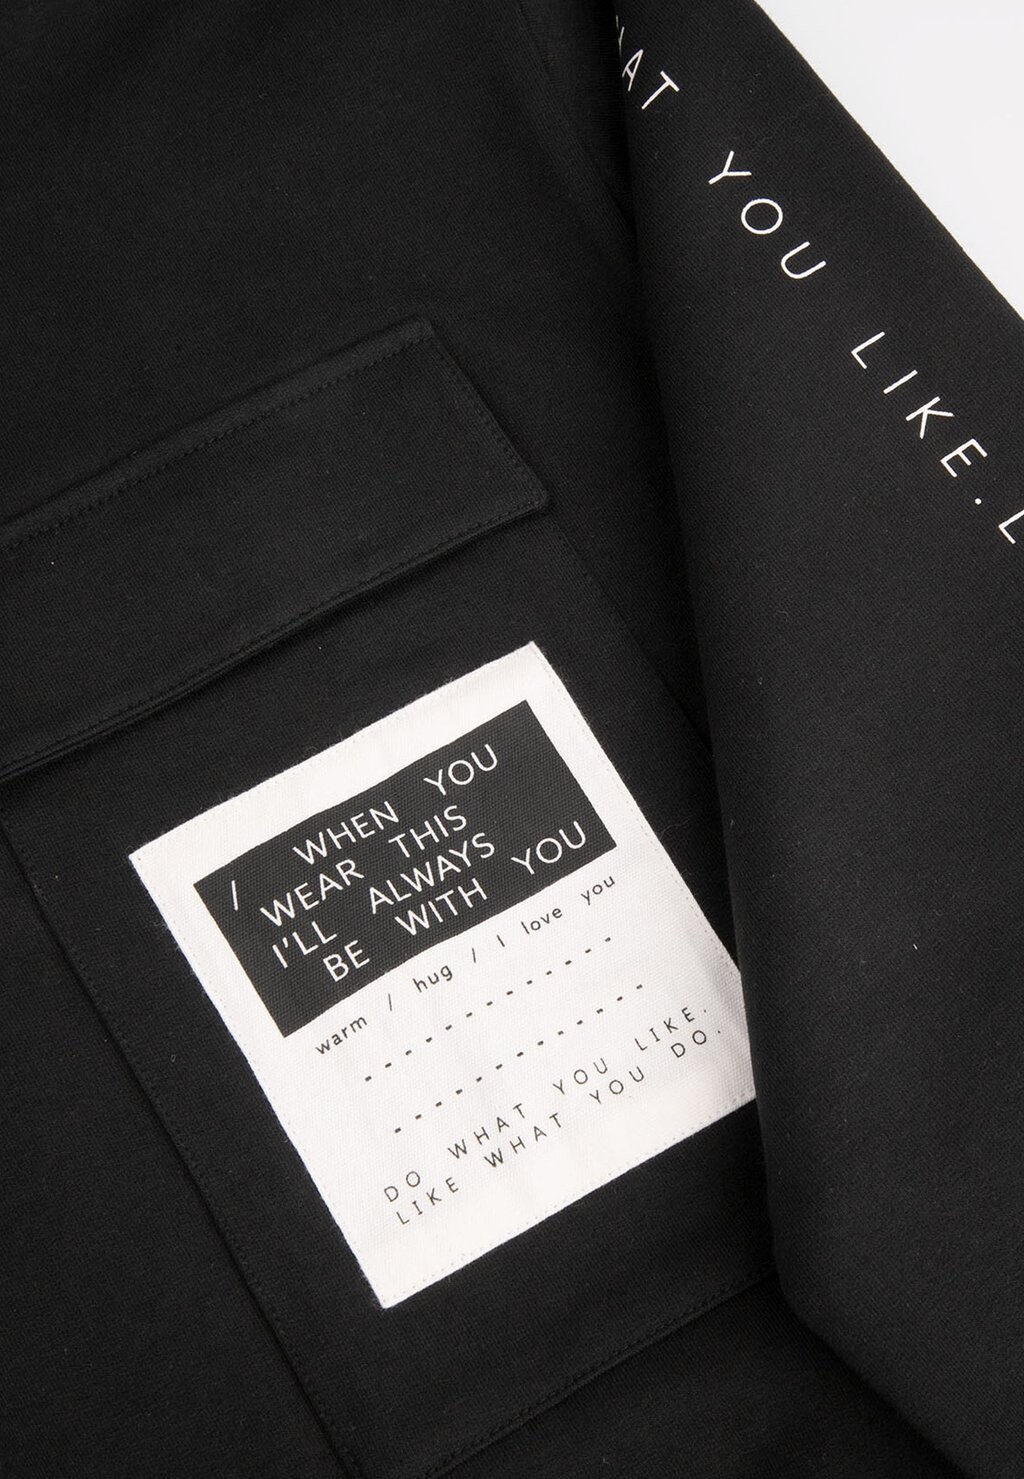 YOU LIKE.
/ WHEN YOU
WEAR THIS
I'LL ALWAYS
BE WITH YOU
warm / hug / I love you
- - - - - - - - - - - -
- - - - - - - - - - - -
DO WHAT YOU LIKE.
LIKE WHAT YOU DO.